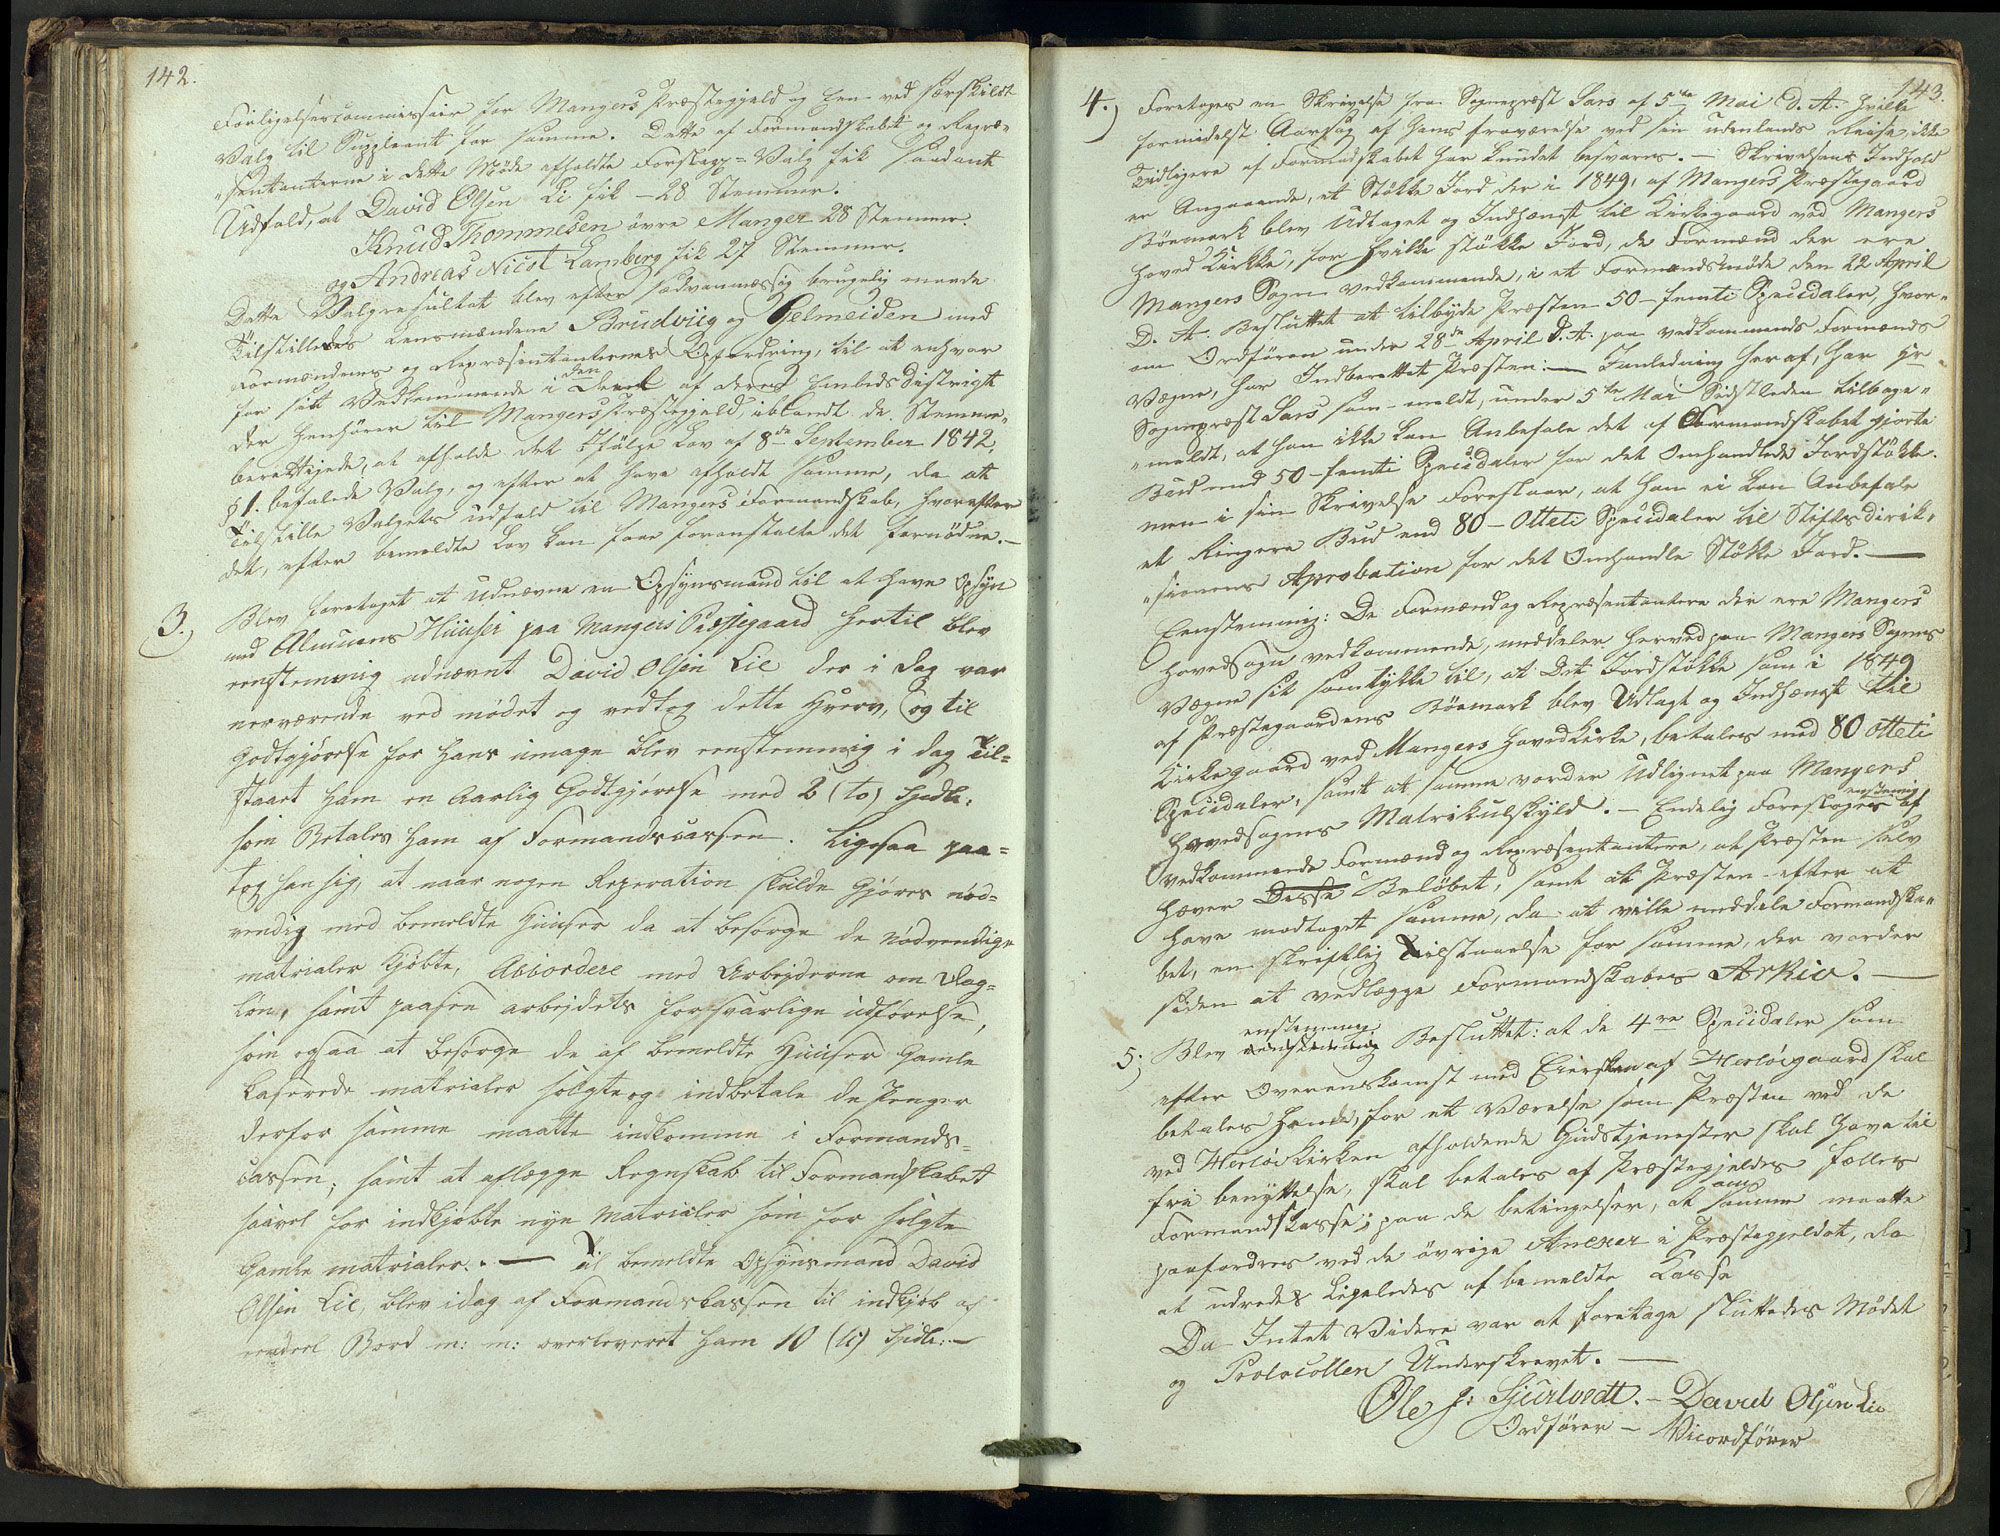 142.
Forligelsescommissair for Mangers Præstegjeld og een ved særskildt
Valg til Suppleant for samme. Dette af Formandskabet og Repræ=
=sentanterne i dette Møde afholdte Forslags=Valg fik saadant
Udfald, at David Olsen Li fik – 28 Stemmer.
Knud Thommesen øvre Manger 28 Stemmer.
og Andreas Nicol: Lamberg fik 27 Stemmer.
Dette Valgresultat blev efter sædvanmæssig brugelig maade
Tilstilledes Lensmændene Brudviig og Helmeiden med
Formændenes og Repræsentanternes Opfordring, til at enhver
for sit Vedkommende i den Deel af deres Embeds distrigt
der henhører til Mangers Præstegjeld, iblandt de Stemme=
berettigede, at afholde det Ifølge Lov af 8de September 1842,
§ 1. befalede Valg, og efter at have afholdt samme, da at
Tilstille Valgets udfald til Mangers Formandskab, hvorefter
det, efter bemeldte Lov kan faae foranstaltet det fornødne. –
3.) Blev foretaget at Udnævne en Opsynsmand til at have Opsyn
med Almuens Huuser paa Mangers Præstegaard hertil blev
eenstemmig udnævnt David Olsen Lie der i dag var
nerværende ved mødet og vedtog dette Hverv, og til
Godtgjørelse for hans umage blev eenstemmig i dag Til=
staaet ham en Aarlig Godtgjørelse med 2 (to) Spdlr:
som Betales ham af Formandscassen. Ligesaa paa=
tog han sig, at naar nogen Reparation skulde Gjøres nød=
vendig med bemeldte Huuser da at besørge de Nødvendige
matrialer kjøbte, Accordere med Arbeiderne om Dag=
løn, samt paasee arbeidets forsvarlige udførelse,
som ogsaa at besørge de af bemeldte Huuser Gamle
Kaserede matrialer solgte og indbetale de Penger
derfor samme maatte indkomme i Formands=
cassen; samt at aflægge Regnskab til Formandskabet
saavel for indkjøbte nye Matrialer som for solgte
Gamle matrialer. – Til bemeldte Opsynsmand David
Olsen Lie, blev idag af Formandskassen til indkjøb af
eendeel Bord m: m: overleveret ham 10 (ti) Spdlr: –
143.
4.) Foretoges en Skrivelse fra Sogneprest Sars af 5te Mai D. A. hvilke
formidelst Aarsag af hans fraværelse ved sin udenlands Reise, ikke
Tidligere af Formandskabet har kundet besvares. – Skrivelsens Indhold
er Angaaende, et Støkke Jord der i 1849, af Mangers Præstegaard
Bømark blev Udtaget og Indhægnet til Kirkegaard ved Mangers
Hoved Kirkke, for hvilke støkke Jord, de Formænd der ere
Mangers Sogn vedkommende, i et Formandsmøde den 22 April
D. A. Besluttet at tilbyde Præsten 50 – femti Speciedaler, hvor=
om Ordføren under 28de April D. A. paa vedkommende Formænds
Vægne, har Indberettet Præsten. – I anledning heraf, har Hr
Sogneprest Sars som – meldt, under 5te Mai Sidstleden tilbage=
=meldt, at han ikke kan Anbefale det af Formandskabet gjorte
Bud med 50 – femti Speciedaler for det Omhandlede Jordstøkke.
men i sin Skrivelse Foreslaar, at han ei kan Anbefale
et Ringere Bud end 80 – Otteti Speciedaler til Stiftsdirik=
=sionens Aprobation for det Omhandle Støkke Jord. –
Eenstemmig: De Formænd og Repræsentantere der ere Mangers
Hovedsogn vedkommende, meddeler herved paa Mangers Sognes
Vægne sit samtykke til, at det Jordstøkke som i 1849
af Præstegaardens Bømark blev Udlagt og Indhægnet til
Kirkegaard ved Mangers Hovedkirke, betales med 80 otteti
Speciedaler, samt at samme vorder Udlignet paa Mangers
Hovedsognes Matrikulskyld. – Endelig Foresloges enstemmig af
vedkommende Formænd og Repræsentantere, at Præsten selv
hæver Desse Beløbet, samt at Præsten efter at
have modtaget samme, da at ville meddele Formandska=
bet, en skriftlig Tilstaaelse for samme, der vorder
siden at vedlægge Formandskabes Arkiv. –
5; Blev enstemmig Besluttet: at de 4re Speciedaler som
efter Overenskomst med Eiersken af Herløegaard skal
betales hende, for et Værelse som Præsten ved de
ved Herløekirken afholdende Gudstjenester skal have til
fri benyttelse, skal betales af Præstegjeldes fælles
Formandskasse; paa de betingelser, at om samme maatte
paafordres ved de øvrige Anexer i Præstegjeldet, da
at udredes Ligeledes af bemeldte Kasse
Da Intet Videre var at foretage sluttedes Mødet
og Protocollen Underskrevet. –
Ole J: Sjurtvedt. – David Olsen Lie
Ordfører – Viceordfører